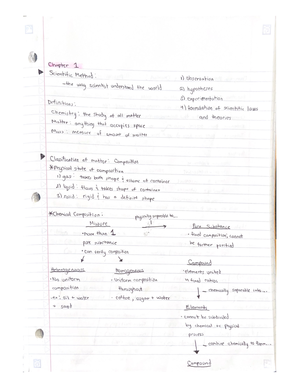 Chapter 1
Scientific Method:
- the way scientist understand the world
1) observation
2) hypothesis
3) experimentation
4) foundation of scientific laws
and theories
Definitions:
Chemistry: the study of all matter
Matter: anything that occupies space
Mass: measure of amount of matter
Classification of matter: Composition
*Physical state of composition
1) gas: takes both shape & volume of container
2) liquid: flows & takes shape of container
3) solid: rigid & has definite shape
*Chemical Composition:
physically separable to...
Mixture
Pure Substance
• more than 1
pure substance
• Can vary composition
• fixed composition, cannot
be further purified
Heterogeneous
Homogeneous
Compound
• No uniform
composition
• ex: oil + water
+ sand
• uniform composition
throughout
• coffee, sugar + water
• elements united
in fixed ratios
chemically separable into...
Elements
• cannot be subdivided
by chemical or physical
process
combine chemically to form...
Compound